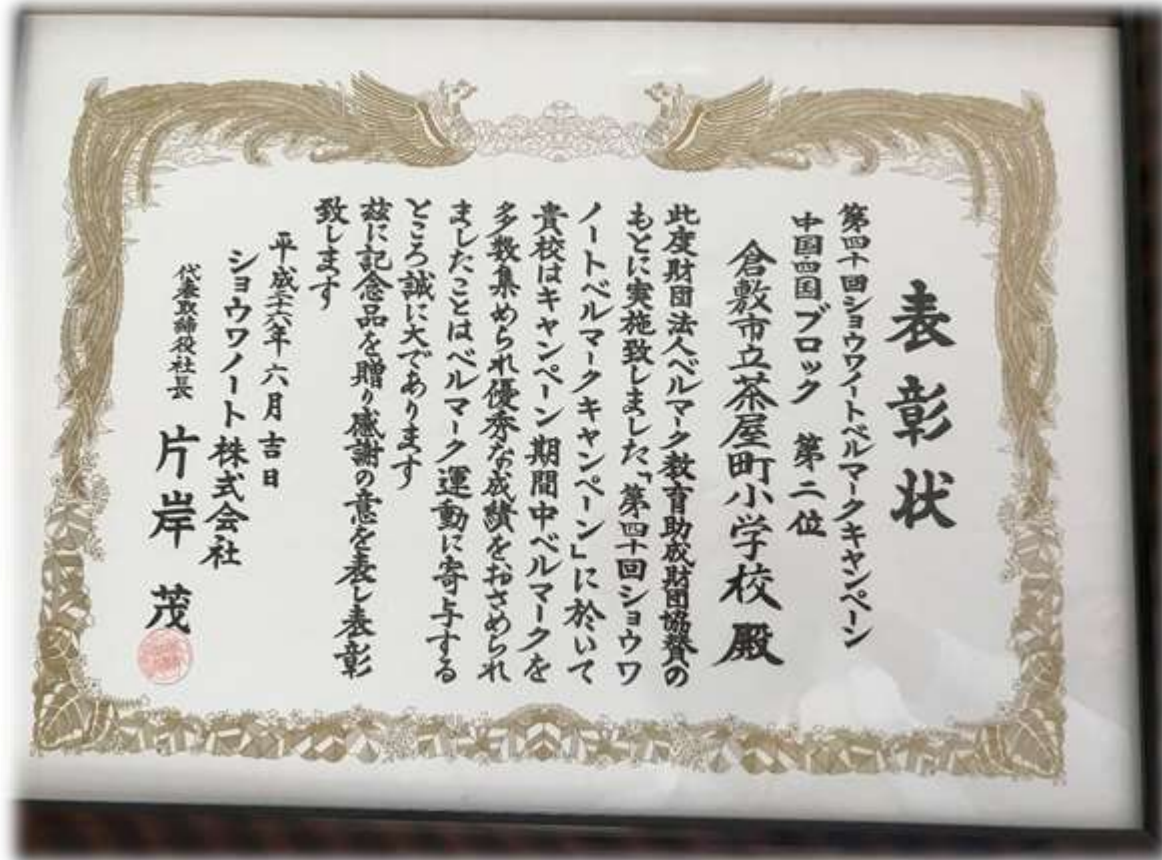 表彰状
第四十回ショウワノートベルマークキャンペーン
中国四国ブロック 第二位
倉敷市立茶屋町小学校 殿
此度財団法人ベルマーク教育助成財団協賛の
もとに実施致しました「第四十回ショウワ
ノートベルマークキャンペーン」に於いて
貴校はキャンペーン期間中ベルマークを
多数集められ優秀な成績をおさめられ
ましたことはベルマーク運動に寄与する
ところ誠に大であります
茲に記念品を贈り感謝の意を表し表彰
致します
平成二十六年六月吉日
ショウワノート株式会社
代表取締役社長 片岸 茂